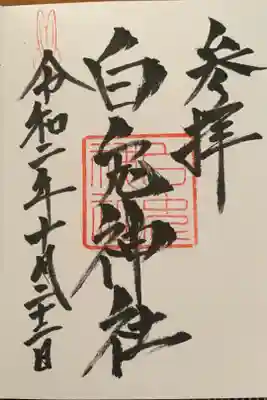 参拝
白兎神社
令和二年十月二十二日